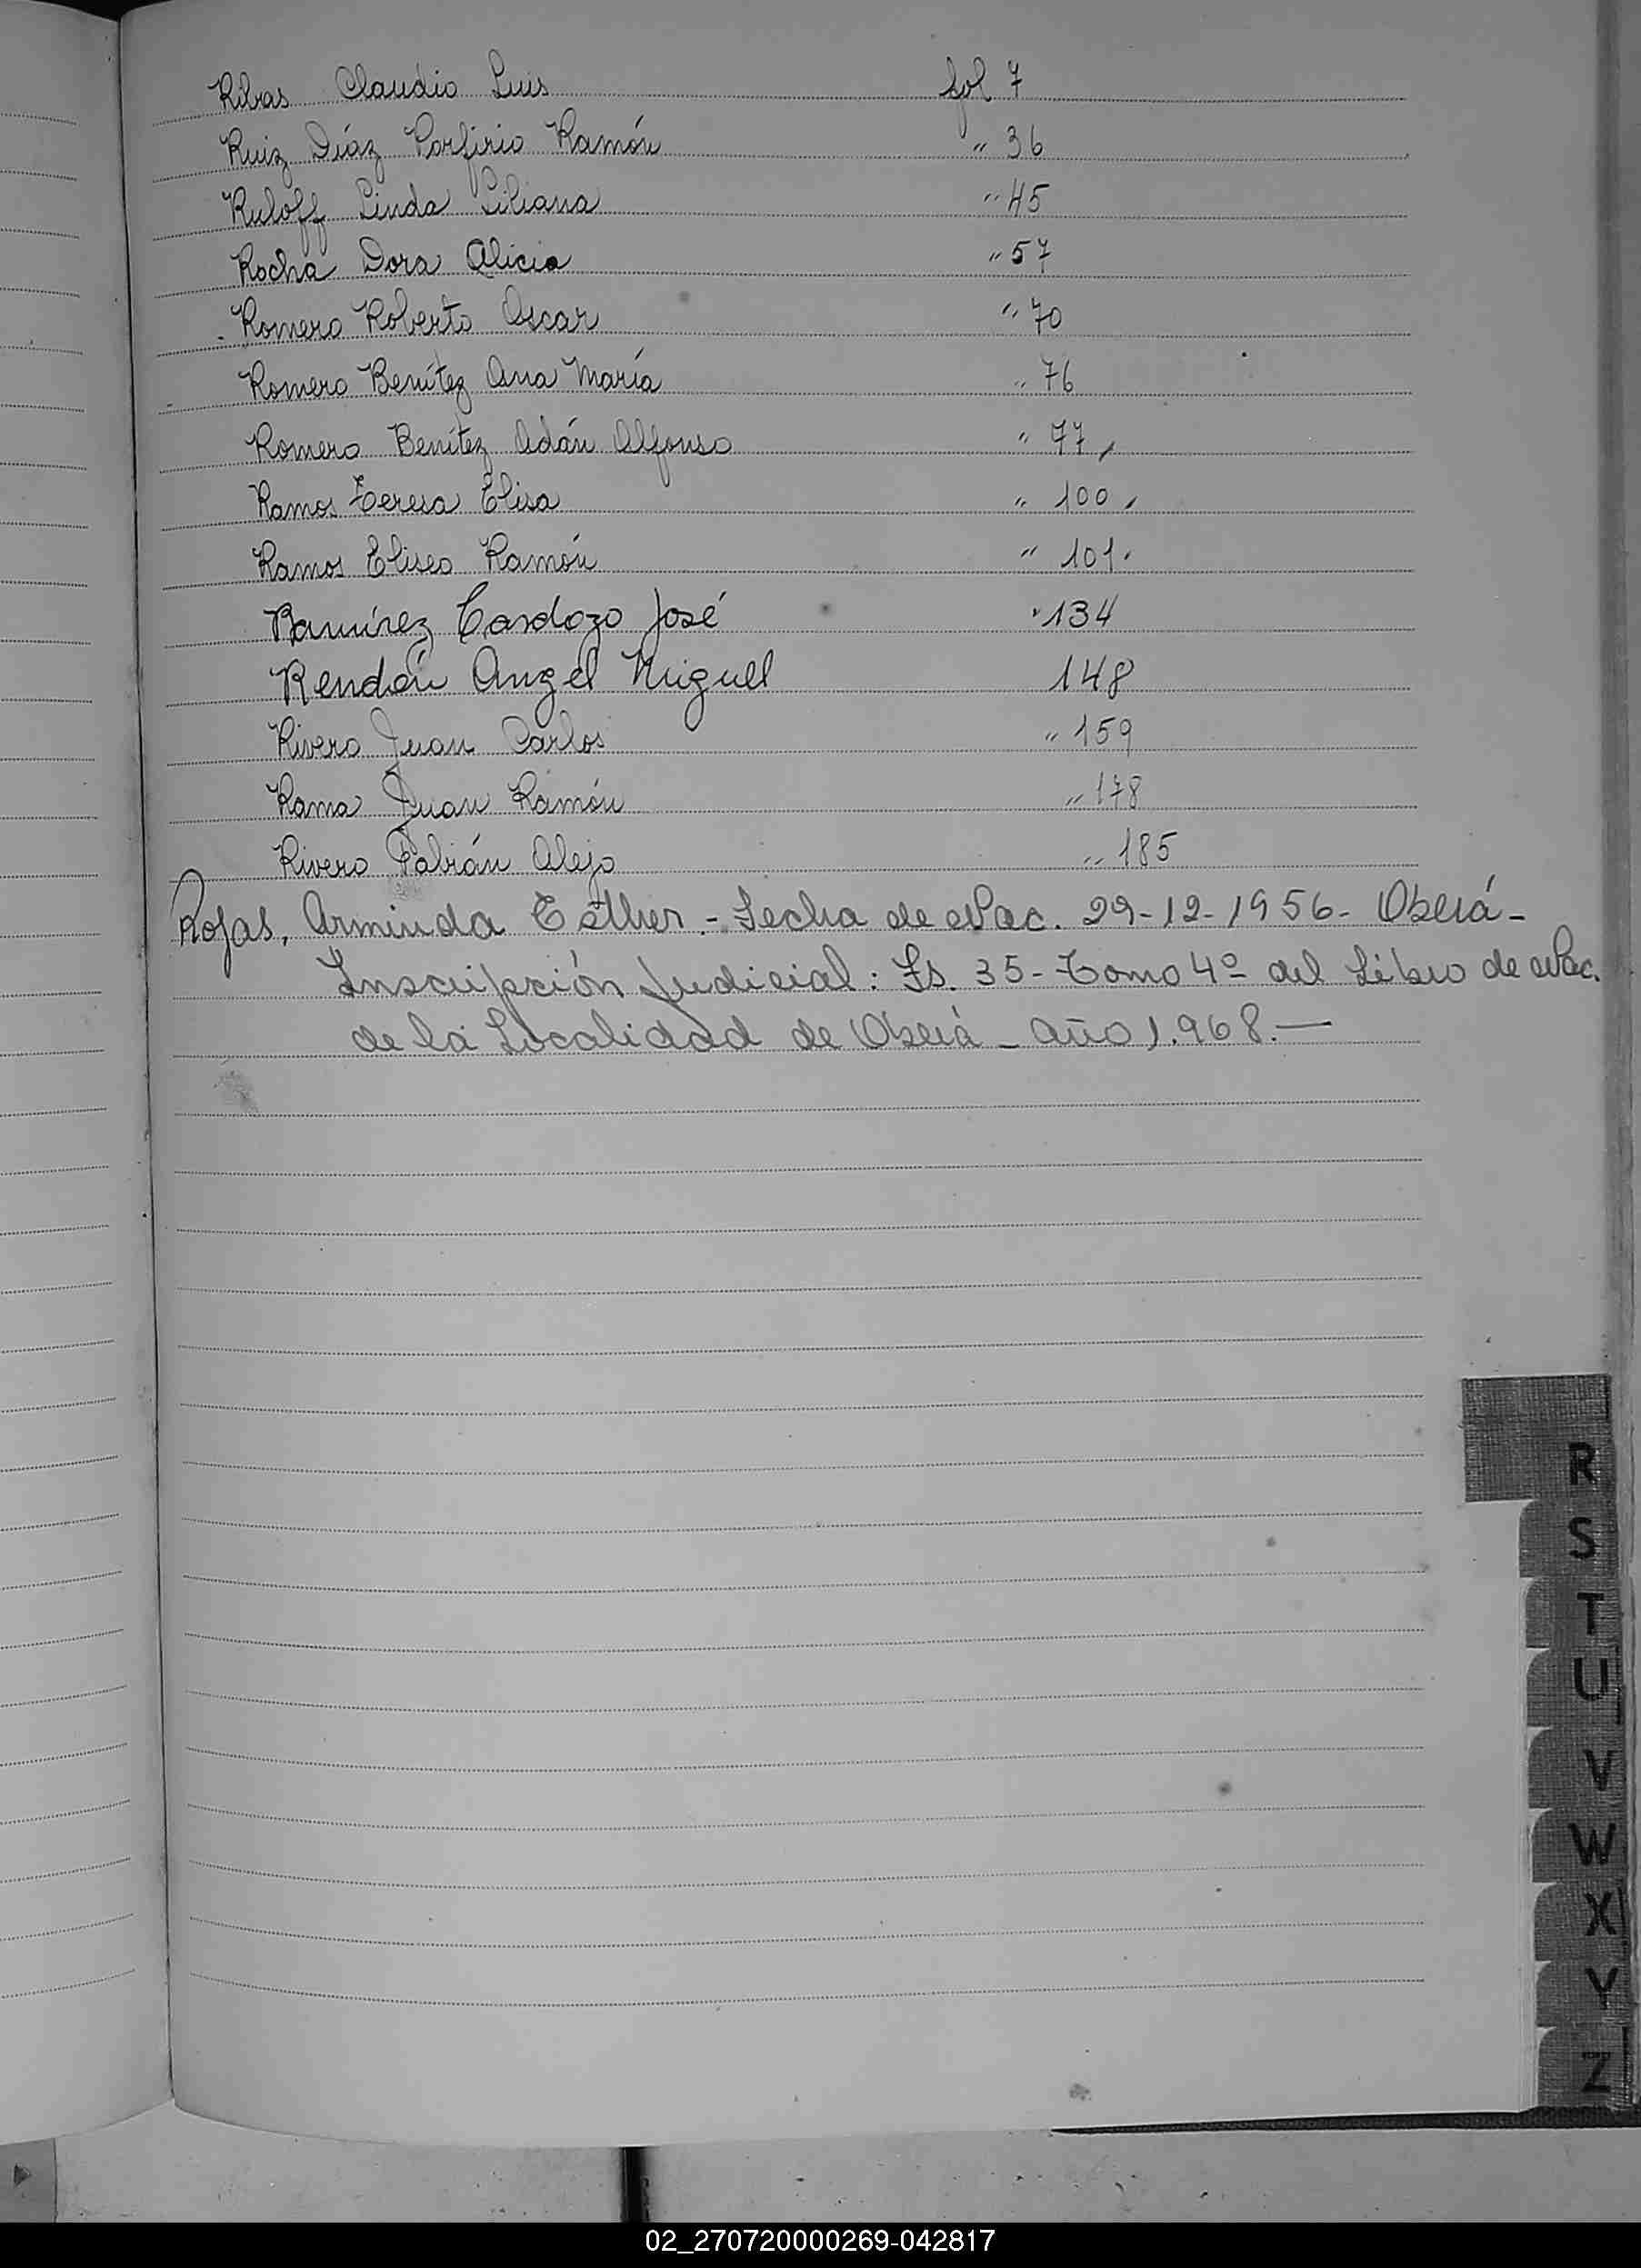 Ribas Claudio Luis fol 7
Ruiz Díaz Porfirio Ramón " 36
Ruloff Linda Liliana " 45
Rocha Dora Alicia " 57
Romero Roberto Oscar " 70
Romero Benítez Ana María " 76
Romero Benítez Adán Alfonso " 77
Ramos Teresa Elisa " 100
Ramos Eliseo Ramón " 101.
Ramírez Cardozo José " 134
Rendón Angel Miguel 148
Rivero Juan Carlos " 159
Rama Juan Ramón " 178
Rivero Fabián Alejo " 185
Rojas, Arminda Esther.- Fecha de Nac. 29-12-1956- Oberá-
Inscripción Judicial: Fs. 35- Tomo 4º del Libro de Nac.
de la Localidad de Oberá - Año 1.968.—
R
S
T
U
V
W
X
Y
Z
02_270720000269-042817